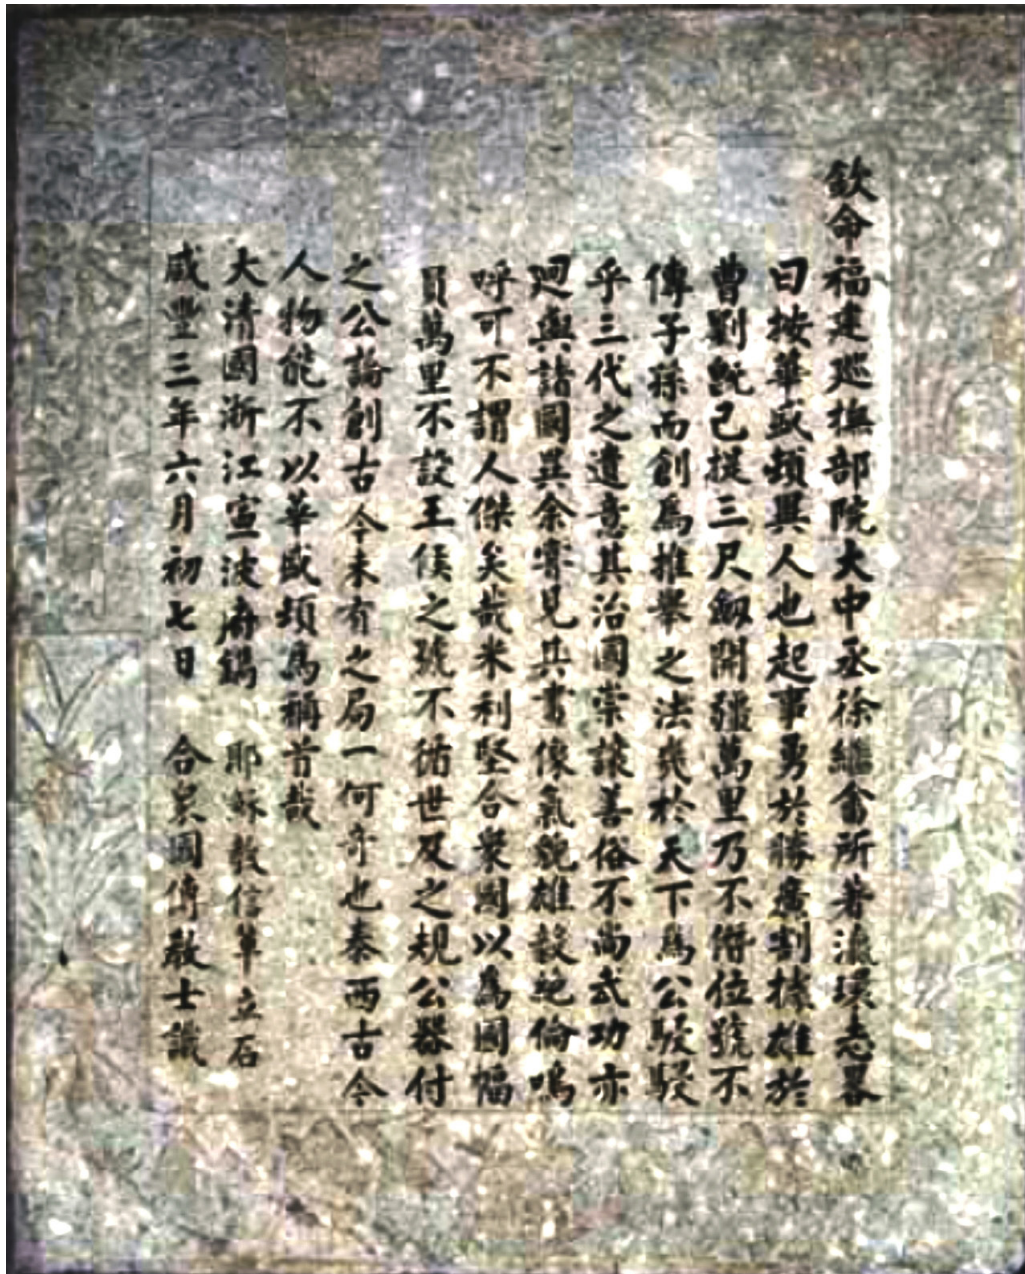 欽命福建巡撫部院大中丞徐繼畬所著瀛環志畧
曰按華盛頓異人也起事勇於勝廣割據雄於
曹劉既已提三尺劔開疆萬里乃不僭位號不
傳子孫而創為推舉之法幾於天下為公駸駸
乎三代之遺意其治國崇讓善俗不尚武功亦
迥與諸國異余嘗見其畫像氣貌雄毅絕倫嗚
呼可不謂人傑矣哉米利堅合衆國以為國幅
員萬里不設王侯之號不循世及之規公器付
之公論創古今未有之局一何奇也泰西古今
人物能不以華盛頓為稱首哉
大清國浙江寧波府鐫 耶穌教信軰立石
咸豐三年六月初七日 合衆國傳教士識